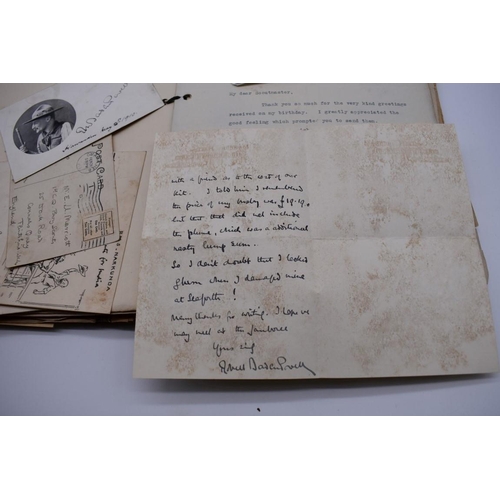 My dear Scoutmaster,
Thank you so much for the very kind greetings
received on my birthday. I greatly appreciated the
good feeling which prompted you to send them.
with a friend as to the cost of our
kit. I told him I remembered
the price of my busby was £19.19.
but that that did not include
the plume, which was an additional
nasty lump sum.
So I don't doubt that I looked
glum when I damaged mine
at Seaforth!
Many thanks for writing. I hope we
may meet at the Jamboree
Yours
Baden Powell
POST CARD